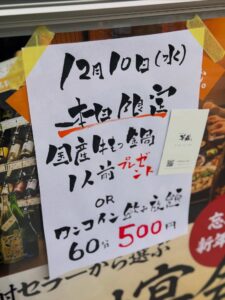 12月10日(水)
本日限定
国産牛もつ鍋
1人前プレゼント
OR
ワンコイン飲み放題
60分500円
付セラーから選ぶ
忘
新年
宴会